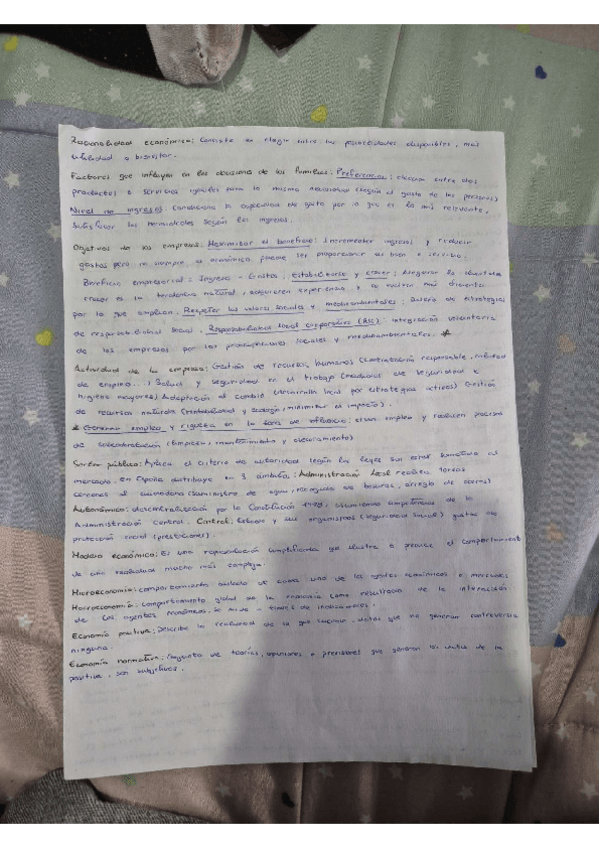 Racionalidad económica: Consiste en elegir entre las posibilidades disponibles, más
utilidad o bienestar.
Factores que influyen en las decisiones de las familias: Preferencias: eligen entre dos
productos o servicios iguales para la misma necesidad (según el gusto de las personas)
Nivel de ingresos: Condiciona la capacidad de gasto por lo que es la más relevante,
satisfacer las necesidades según los ingresos.
Objetivos de las empresas: Maximizar el beneficio: Incrementar ingresos y reducir
gastos pero no siempre es económico puede ser proporcionar un bien o servicio.
Beneficio empresarial = Ingreso - Gastos; Estabilizarse y crecer: Asegurar
crecer es la tendencia natural, adquieren experiencia y
por lo que amplían. Respetar los valores sociales y medioambientales: diseño de estrategias
de responsabilidad social. Responsabilidad social corporativa (RSC): integración voluntaria
de las empresas por las preocupaciones sociales y medioambientales. *
Actividad de la empresa: Gestión de recursos humanos (contratación responsable,
de empleo...) Salud y seguridad en el trabajo (medidas de seguridad e
higiene mayores) Adaptación al cambio (desarrollo local por estrategias activas) Gestión
de recursos naturales (rentabilidad y ecología: minimizar el impacto).
* Generan empleo y riqueza en la zona de influencia: crean empleo y realizan procesos
de subcontratación (limpieza, mantenimiento y asesoramiento)
Sector público: Aplica el criterio de autoridad según las leyes sin estar sometido al
mercado, en España distribuye en 3 ámbitos: Administración local realiza tareas
cercanas al ciudadano (suministro de agua, recogida de basuras, arreglo de aceras)
Autonómico: descentralización por la Constitución 1978, asumiendo competencias de la
Administración Central. Central: Estado y sus organismos (seguridad social) gastos de
protección social (prestaciones).
Modelo económico: Es una representación simplificada que ilustra o predice el comportamiento
de una realidad mucho más compleja.
Microeconomía: comportamiento aislado de cada uno de los agentes económicos o mercados
Macroeconomía: comportamiento global de la economía como resultado de la interacción
de los agentes económicos, se mide a través de indicadores.
Economía positiva: Describe la realidad de lo que sucede, datos que no generan controversia
ninguna.
Economía normativa: Conjunto de teorías, opiniones o previsiones que generan los datos de la
positiva, son subjetivos.